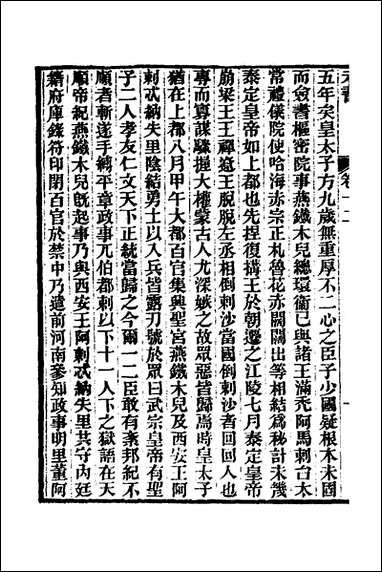 五年矣皇太子方九歲無重厚不二心之臣子少國疑根本未固
而僉書樞密院事燕鐵木兒總環衞已與諸王滿禿阿馬剌台太
常禮儀院使哈海赤宗正札魯花赤闊闊出等相結爲秘計未幾
泰定皇帝如上都也先捏復搆王於朝遷之江陵七月泰定皇帝
崩梁王王禪遼王脫脫左丞相倒剌沙當國倒剌沙者回回人也
專而寡謀驟握大權蒙古人尤深嫉之故眾惡皆歸焉時皇太子
猶在上都八月甲午大都百官集興聖宮燕鐵木兒及西安王阿
剌忒納失里陰結勇士以入兵皆露刃號於眾曰武宗皇帝有聖
子二人孝友仁文天下正統當歸之今爾一二臣敢有紊邦紀不
順者斬遂手縛平章政事兀伯都剌以下十一人下之獄語在天
順帝紀燕鐵木兒旣起事乃與西安王阿剌忒納失里共守內廷
籍府庫錄符印閉百官於禁中乃遣前河南參知政事明里董阿
元書
卷十二